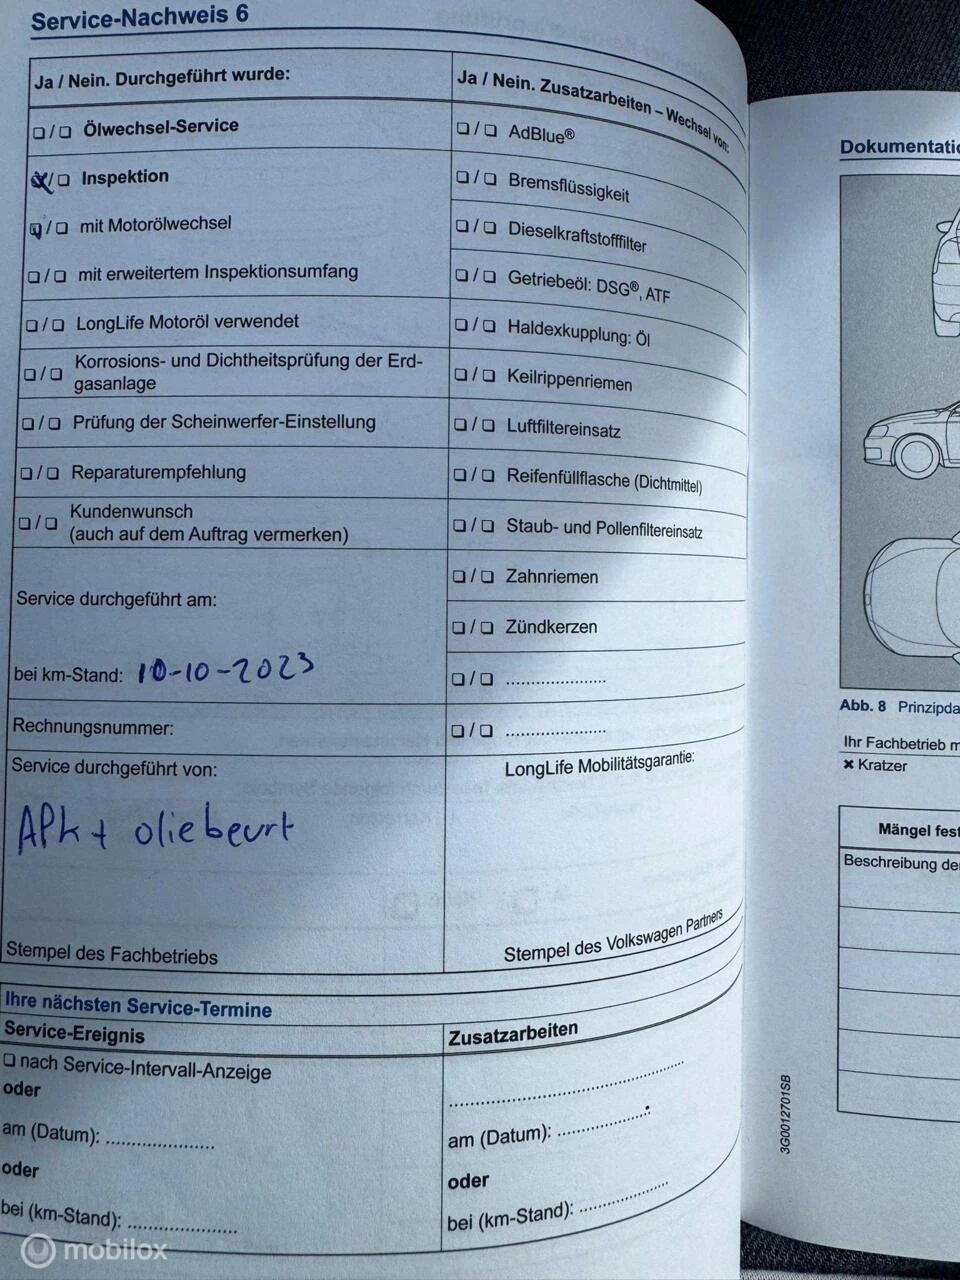 Service-Nachweis 6
Ja / Nein. Durchgeführt wurde:
❑ / ❑ Ölwechsel-Service
❑ / ❑ Inspektion
❑ / ❑ mit Motorölwechsel
❑ / ❑ mit erweitertem Inspektionsumfang
❑ / ❑ LongLife Motoröl verwendet
❑ / ❑ Korrosions- und Dichtheitsprüfung der Erd-
gasanlage
❑ / ❑ Prüfung der Scheinwerfer-Einstellung
❑ / ❑ Reparaturempfehlung
❑ / ❑ Kundenwunsch
(auch auf dem Auftrag vermerken)
Service durchgeführt am:
bei km-Stand: 10-10-2023
Rechnungsnummer:
Service durchgeführt von:
APK + oliebeurt
Stempel des Fachbetriebs
Ja / Nein. Zusatzarbeiten – Wechsel von:
❑ / ❑ AdBlue®
❑ / ❑ Bremsflüssigkeit
❑ / ❑ Dieselkraftstofffilter
❑ / ❑ Getriebeöl: DSG®, ATF
❑ / ❑ Haldexkupplung: Öl
❑ / ❑ Keilrippenriemen
❑ / ❑ Luftfiltereinsatz
❑ / ❑ Reifenfüllflasche (Dichtmittel)
❑ / ❑ Staub- und Pollenfiltereinsatz
❑ / ❑ Zahnriemen
❑ / ❑ Zündkerzen
❑ / ❑ .....................
❑ / ❑ .....................
LongLife Mobilitätsgarantie:
Stempel des Volkswagen Partners
Ihre nächsten Service-Termine
Service-Ereignis
❑ nach Service-Intervall-Anzeige
oder
am (Datum): ......................
oder
bei (km-Stand): ......................
Zusatzarbeiten
..............................................
am (Datum): ..................
oder
bei (km-Stand): ..................
Dokumentatio
Abb. 8 Prinzipda
Ihr Fachbetrieb m
✖ Kratzer
Mängel fest
Beschreibung de
3G0012701SB
mobilox